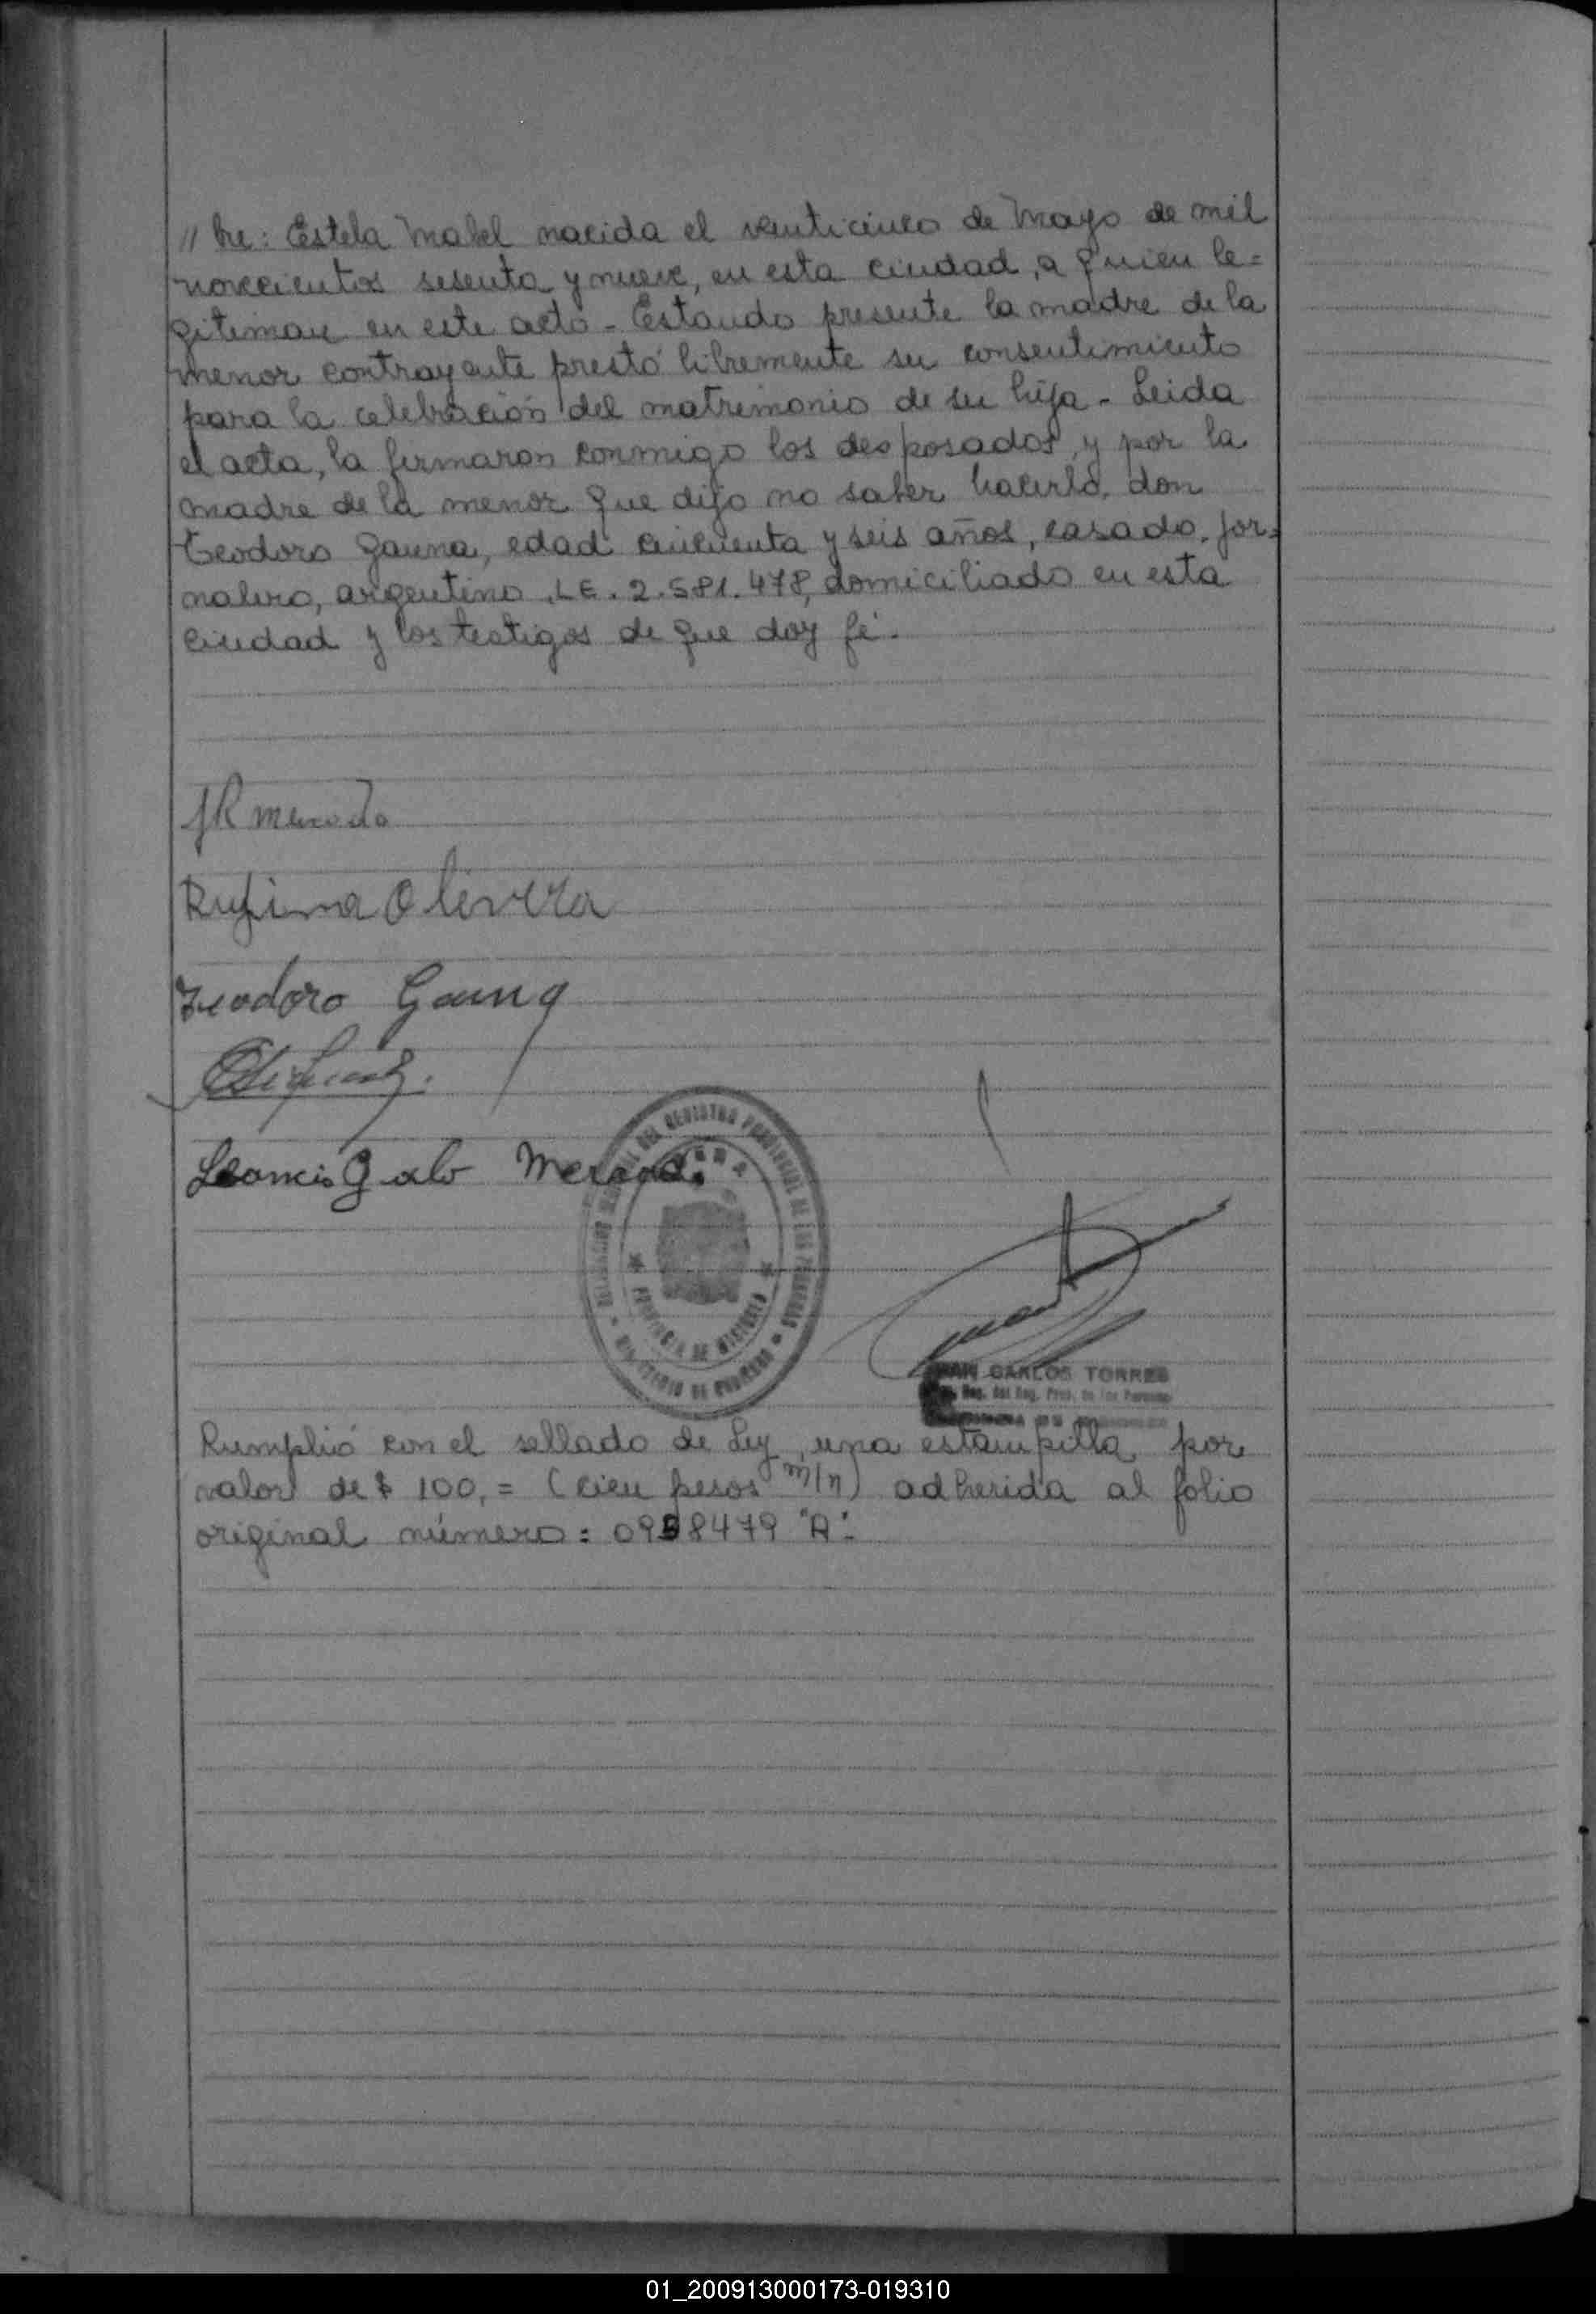 // bre: Estela Mabel nacida el veinticinco de Mayo de mil
novecientos sesenta y nueve, en esta ciudad, a quien le=
gitiman en este acto - Estando presente la madre de la
menor contrayente prestó libremente su consentimiento
para la celebración del matrimonio de su hija - Leida
el acta, la firmaron conmigo los desposados, y por la
madre de la menor que dijo no saber hacerlo, don
Teodoro Gauna, edad cincuenta y seis años, casado, jor=
nalero, argentino, L.E. 2.581.478, domiciliado en esta
ciudad y los testigos de que doy fé.
JR Mercado
Rufina Olivera
Teodoro Gauna
Galo Mercado
DEL REGISTRO PROVINCIAL DE LAS PERSONAS
MINISTERIO DE GOBIERNO
PROVINCIA DE MISIONES
CARLOS TORRES
Cumplió con el sellado de Ley, una estampilla por
valor de $ 100,= (cien pesos m/n) adherida al folio
original número: 0958479 "A".
01_200913000173-019310